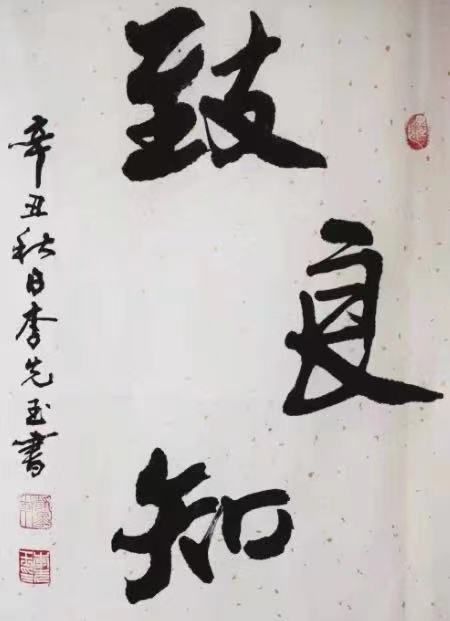 致良知
辛丑秋日李先玉书